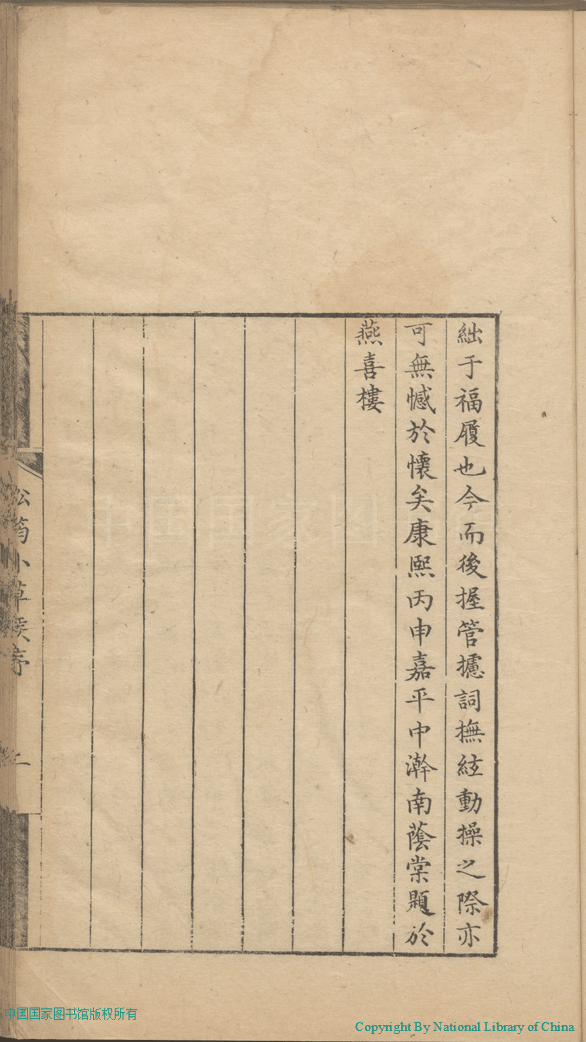 絀于福履也今而後握管攄詞撫絃動操之際亦
可無憾於懷矣康熙丙申嘉平中澣南蔭棠題於
燕喜樓
小草
序
二
中国国家图书馆版权所有
Copyright By National Library of China